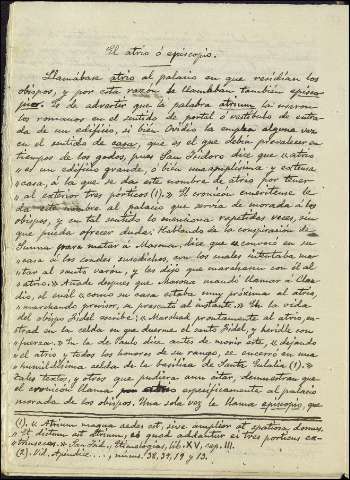 El atrio ó episcopio.
Llamábase atrio al palacio en que residían los
obispos, y por esta razon se llamaban también episco
pios. Es de advertir que la palabra atrium la usaron
los romanos en el sentido de portal ó vestíbulo de entra
da de un edificio, si bién Ovidio la emplea alguna vez
en el sentido de casa, que es el que debía prevalecer en
tiempos de los godos, pues San Isidoro dice que "atrio
"es un edificio grande, ó bién amplísima y extensa
"casa, á la que se da este nombre de atrio por tener
"al exterior tres pórticos (1)." El cronicon emeritense
da este nombre al palacio que servía de morada á los
obispos, y en tal sentido lo menciona repetidas veces, sin
que pueda ofrecer duda: Hablando de la conspiración de
Sunna para matar á Masona, dice que "convocó en su
"casa á los condes susodichos, con los cuales intentaba ma
"tar al santo varón, y les dijo que marchasen con él al
"atrio." Añade despues que Masona mandó llamar á Clau
dio, el cual "como su casa estaba muy próxima al atrio,
"marchando prontor, se presentó al instante." En la vida
del obispo Fidel escribe: "Marchad prontamente al atrio, en
"trad en la celda en que duerme el santo Fidel, y heridle con
"fuerza." En la de Paulo dice antes de morir este, "dejando
"el atrio y todos los honores de su rango, se encerró en una
"humildísima celda de la basílica de Santa Eulalia (1)."
Tales textos, y otros que pudiera aun citar, demuestran que
el cronicon llama atrio específicamente al palacio
morada de los obispos. Una sola vez lo llama episcopio, que
(1). "Atrium magna aedes est, sive amplior et spatiosa domus.
"Et dictum est atrium, eo quod addantur ei tres porticus ex-
"trinsecus." San Isid., Etimologías, lib. XV, cap. III.
(2). Vid. Apéndice..., núms. 38, 39, 19 y 13.